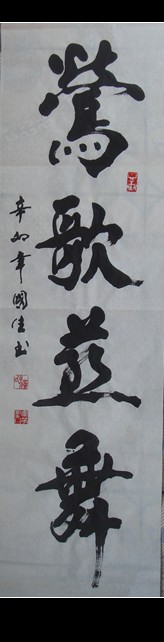 鶯歌燕舞
辛卯年國佳书